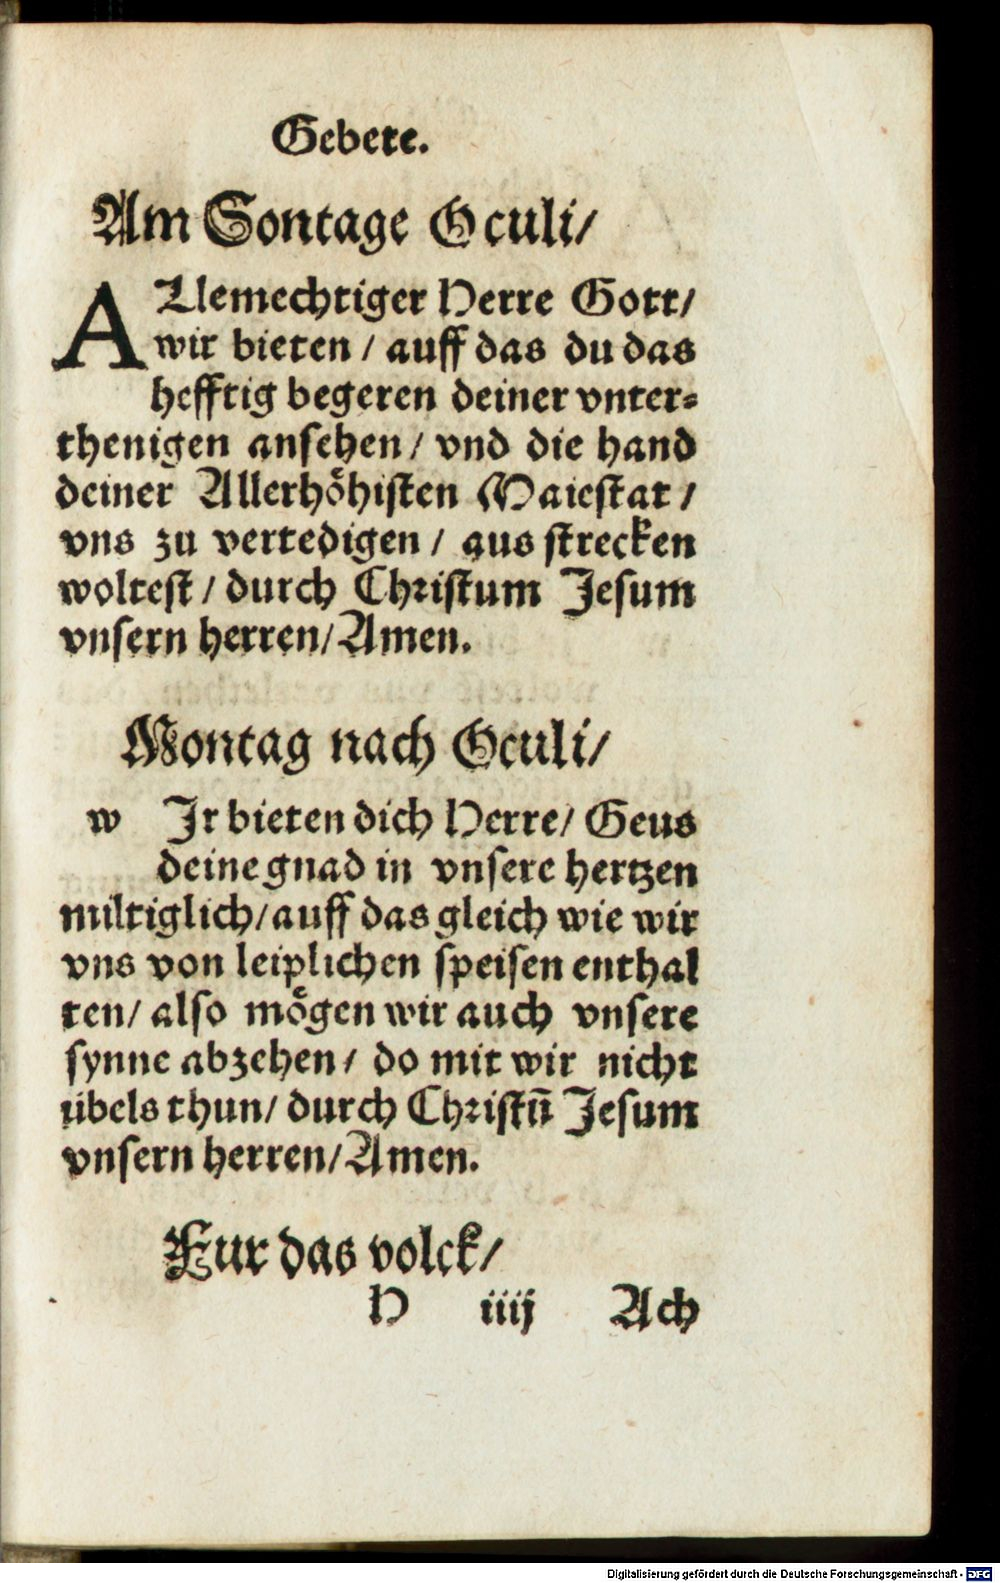 Gebete.
Am Sontage Oculi/
ALlemechtiger Herre Gott/
wir bieten / auff das du das
hefftig begeren deiner vnter⸗
thenigen ansehen / vnd die hand
deiner Allerhöhisten Maiestat /
vns zu vertedigen / aus strecken
woltest / durch Christum Jesum
vnsern herren/ Amen.
Montag nach Oculi/
w Jr bieten dich Herre/ Geus
deine gnad in vnsere hertzen
miltiglich/ auff das gleich wie wir
vns von leiplichen speisen enthal
ten/ also mögen wir auch vnsere
synne abzehen / do mit wir nicht
übels thun/ durch Christū Jesum
vnsern herren/ Amen.
Fur das volck/
H iiij Ach
Digitalisierung gefördert durch die Deutsche Forschungsgemeinschaft - DFG